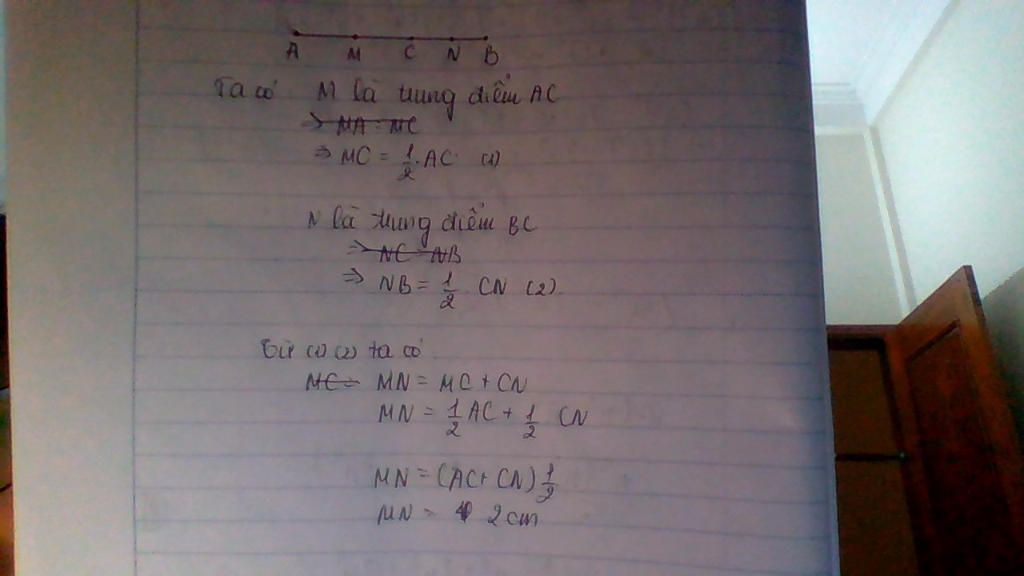 A M C N B
Ta có M là trung điểm AC
=> MA = MC
=> MC = 1/2 . AC (1)
N là trung điểm BC
=> NC = NB
=> NB = 1/2 CN (2)
Từ (1) (2) ta có
MC = MN = MC + CN
MN = 1/2 AC + 1/2 CN
MN = (AC + CN) 1/2
MN = 2 cm